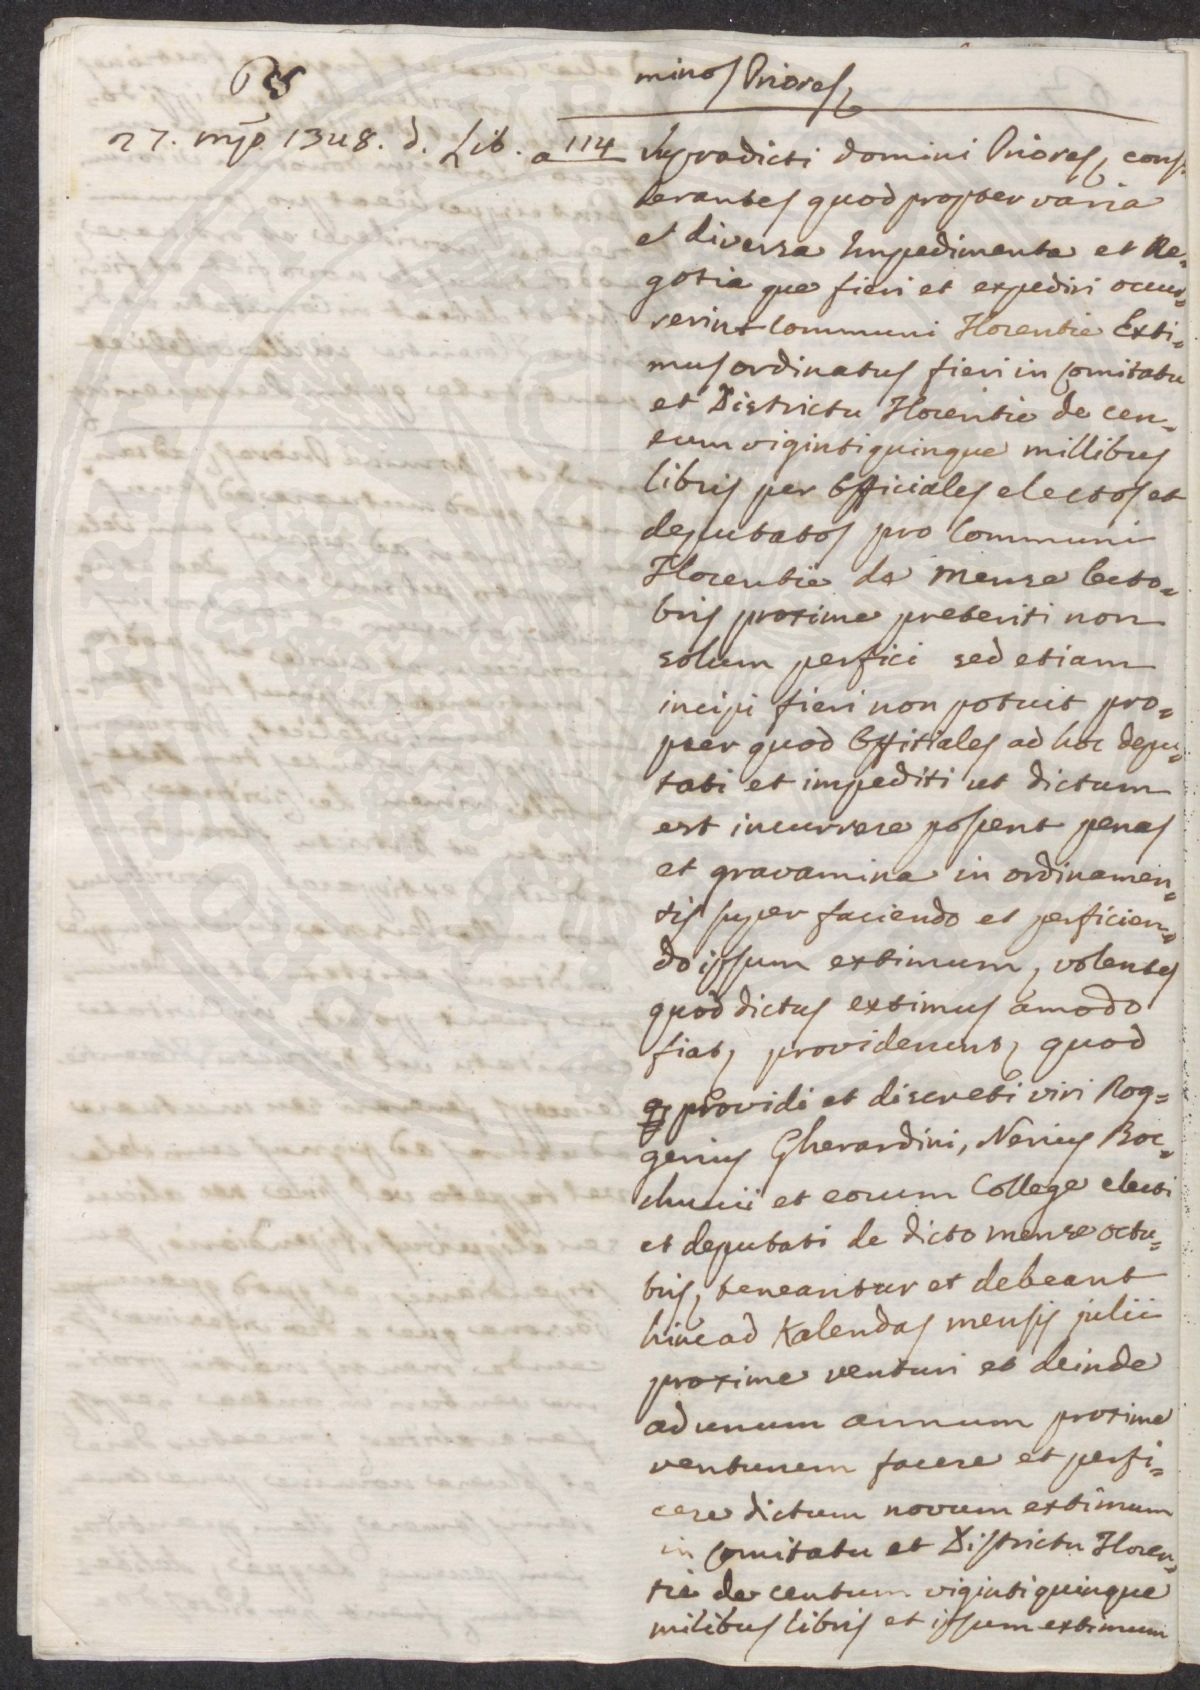 minos Priores,
27. mẽp. 1348. d. Lib. a 114
Supradicti domini Priores, consi-
derantes quod propter varia
et diversa Impedimenta et Ne=
gotia que fieri et expediri occur=
rerint Communi Florentie Exti=
mus ordinatus fieri in Comitatu
et Districtu Florentie de cen=
tum vigintiquinque millibus
libris per Officiales electos et
deputatos pro Communi
Florentie de Mense Octo=
bris proxime preteriti non
solum perfici sed etiam
incipi fieri non potuit pro=
pter quod Offitiales ad hoc depu=
tati et impediti ut dictum
est incurrere possent penas
et gravamina in ordinamen=
tis super faciendo et perficien=
do ipsum extimum, volentes
quod dictus extimus amodo
fiat, providerunt, quod
providi et discreti viri Rog=
gerius Gherardini, Nerius Boc=
chucii et eorum College electi
et deputati de dicto mense octu=
bris, teneantur et debeant
hinc ad Kalendas mensis julii
proxime venturi et deinde
ad unum annum proxime
venturum facere et perfi=
cere dictum novum extimum
in Comitatu et Districtu Floren=
tie de centum vigintiquinque
milibus libris et ipsum extimum